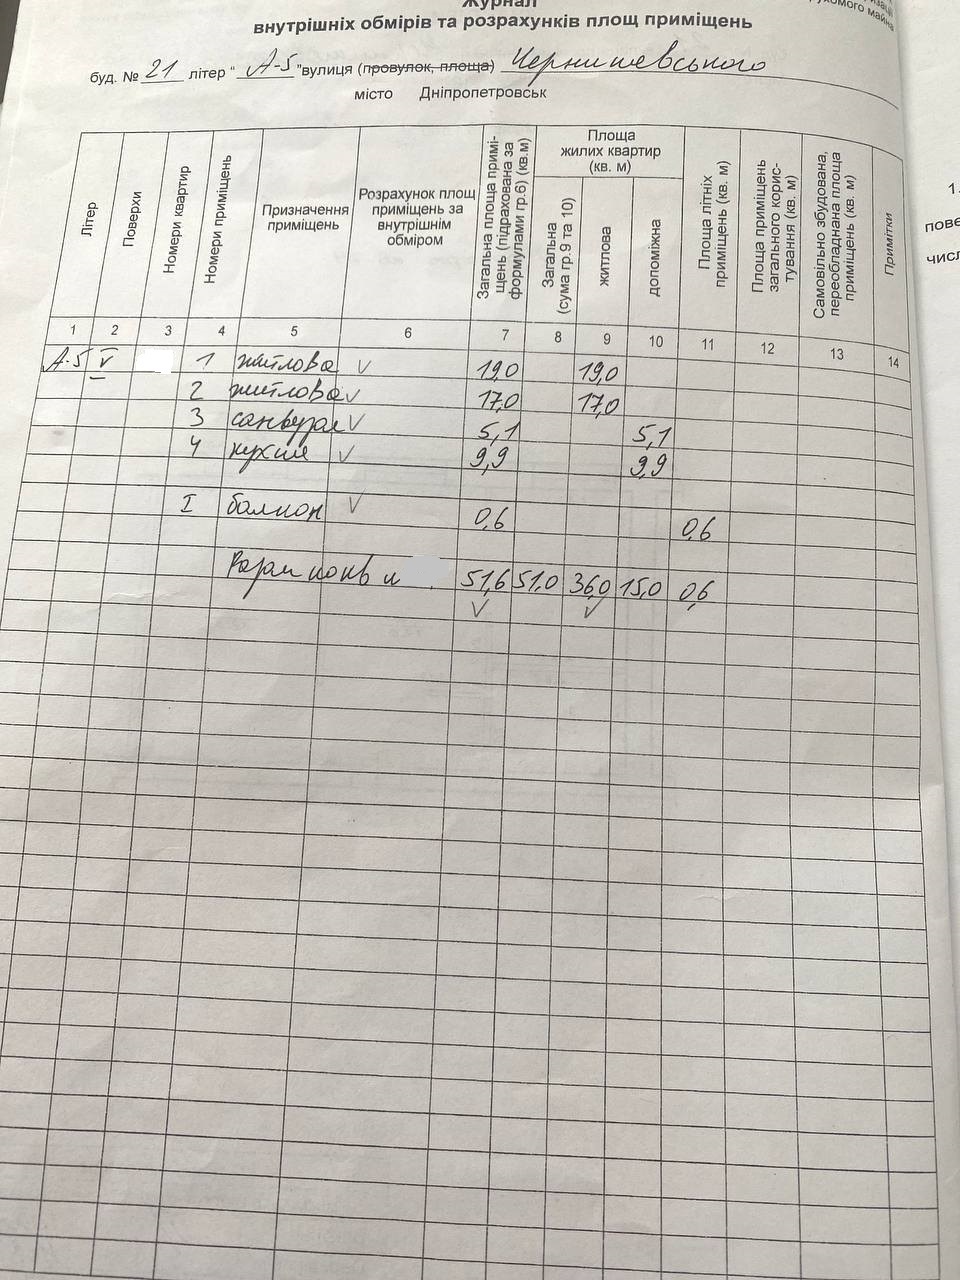 Журнал
внутрішніх обмірів та розрахунків площ приміщень
буд. № 21 літер " А-5 " вулиця (провулок, площа) Чернишевського
місто Дніпропетровськ
Літер
Поверхи
Номери квартир
Номери приміщень
Призначення приміщень
Розрахунок площ приміщень за внутрішнім обміром
Загальна площа приміщень (підрахована за формулами гр.6) (кв.м)
Площа жилих квартир (кв. м)
Загальна (сума гр.9 та 10)
житлова
допоміжна
Площа літніх приміщень (кв. м)
Площа приміщень загального користування (кв. м)
Самовільно збудована, переобладнана площа приміщень (кв. м)
Примітки
1 2 3 4 5 6 7 8 9 10 11 12 13 14
А-5 V 1 житлова 19,0 19,0
2 житлова 17,0 17,0
3 санвузол 5,1 5,1
4 кухня 9,9 9,9
I балкон 0,6 0,6
Разом по кв. 51,6 51,0 36,0 15,0 0,6
1.
пове
числ